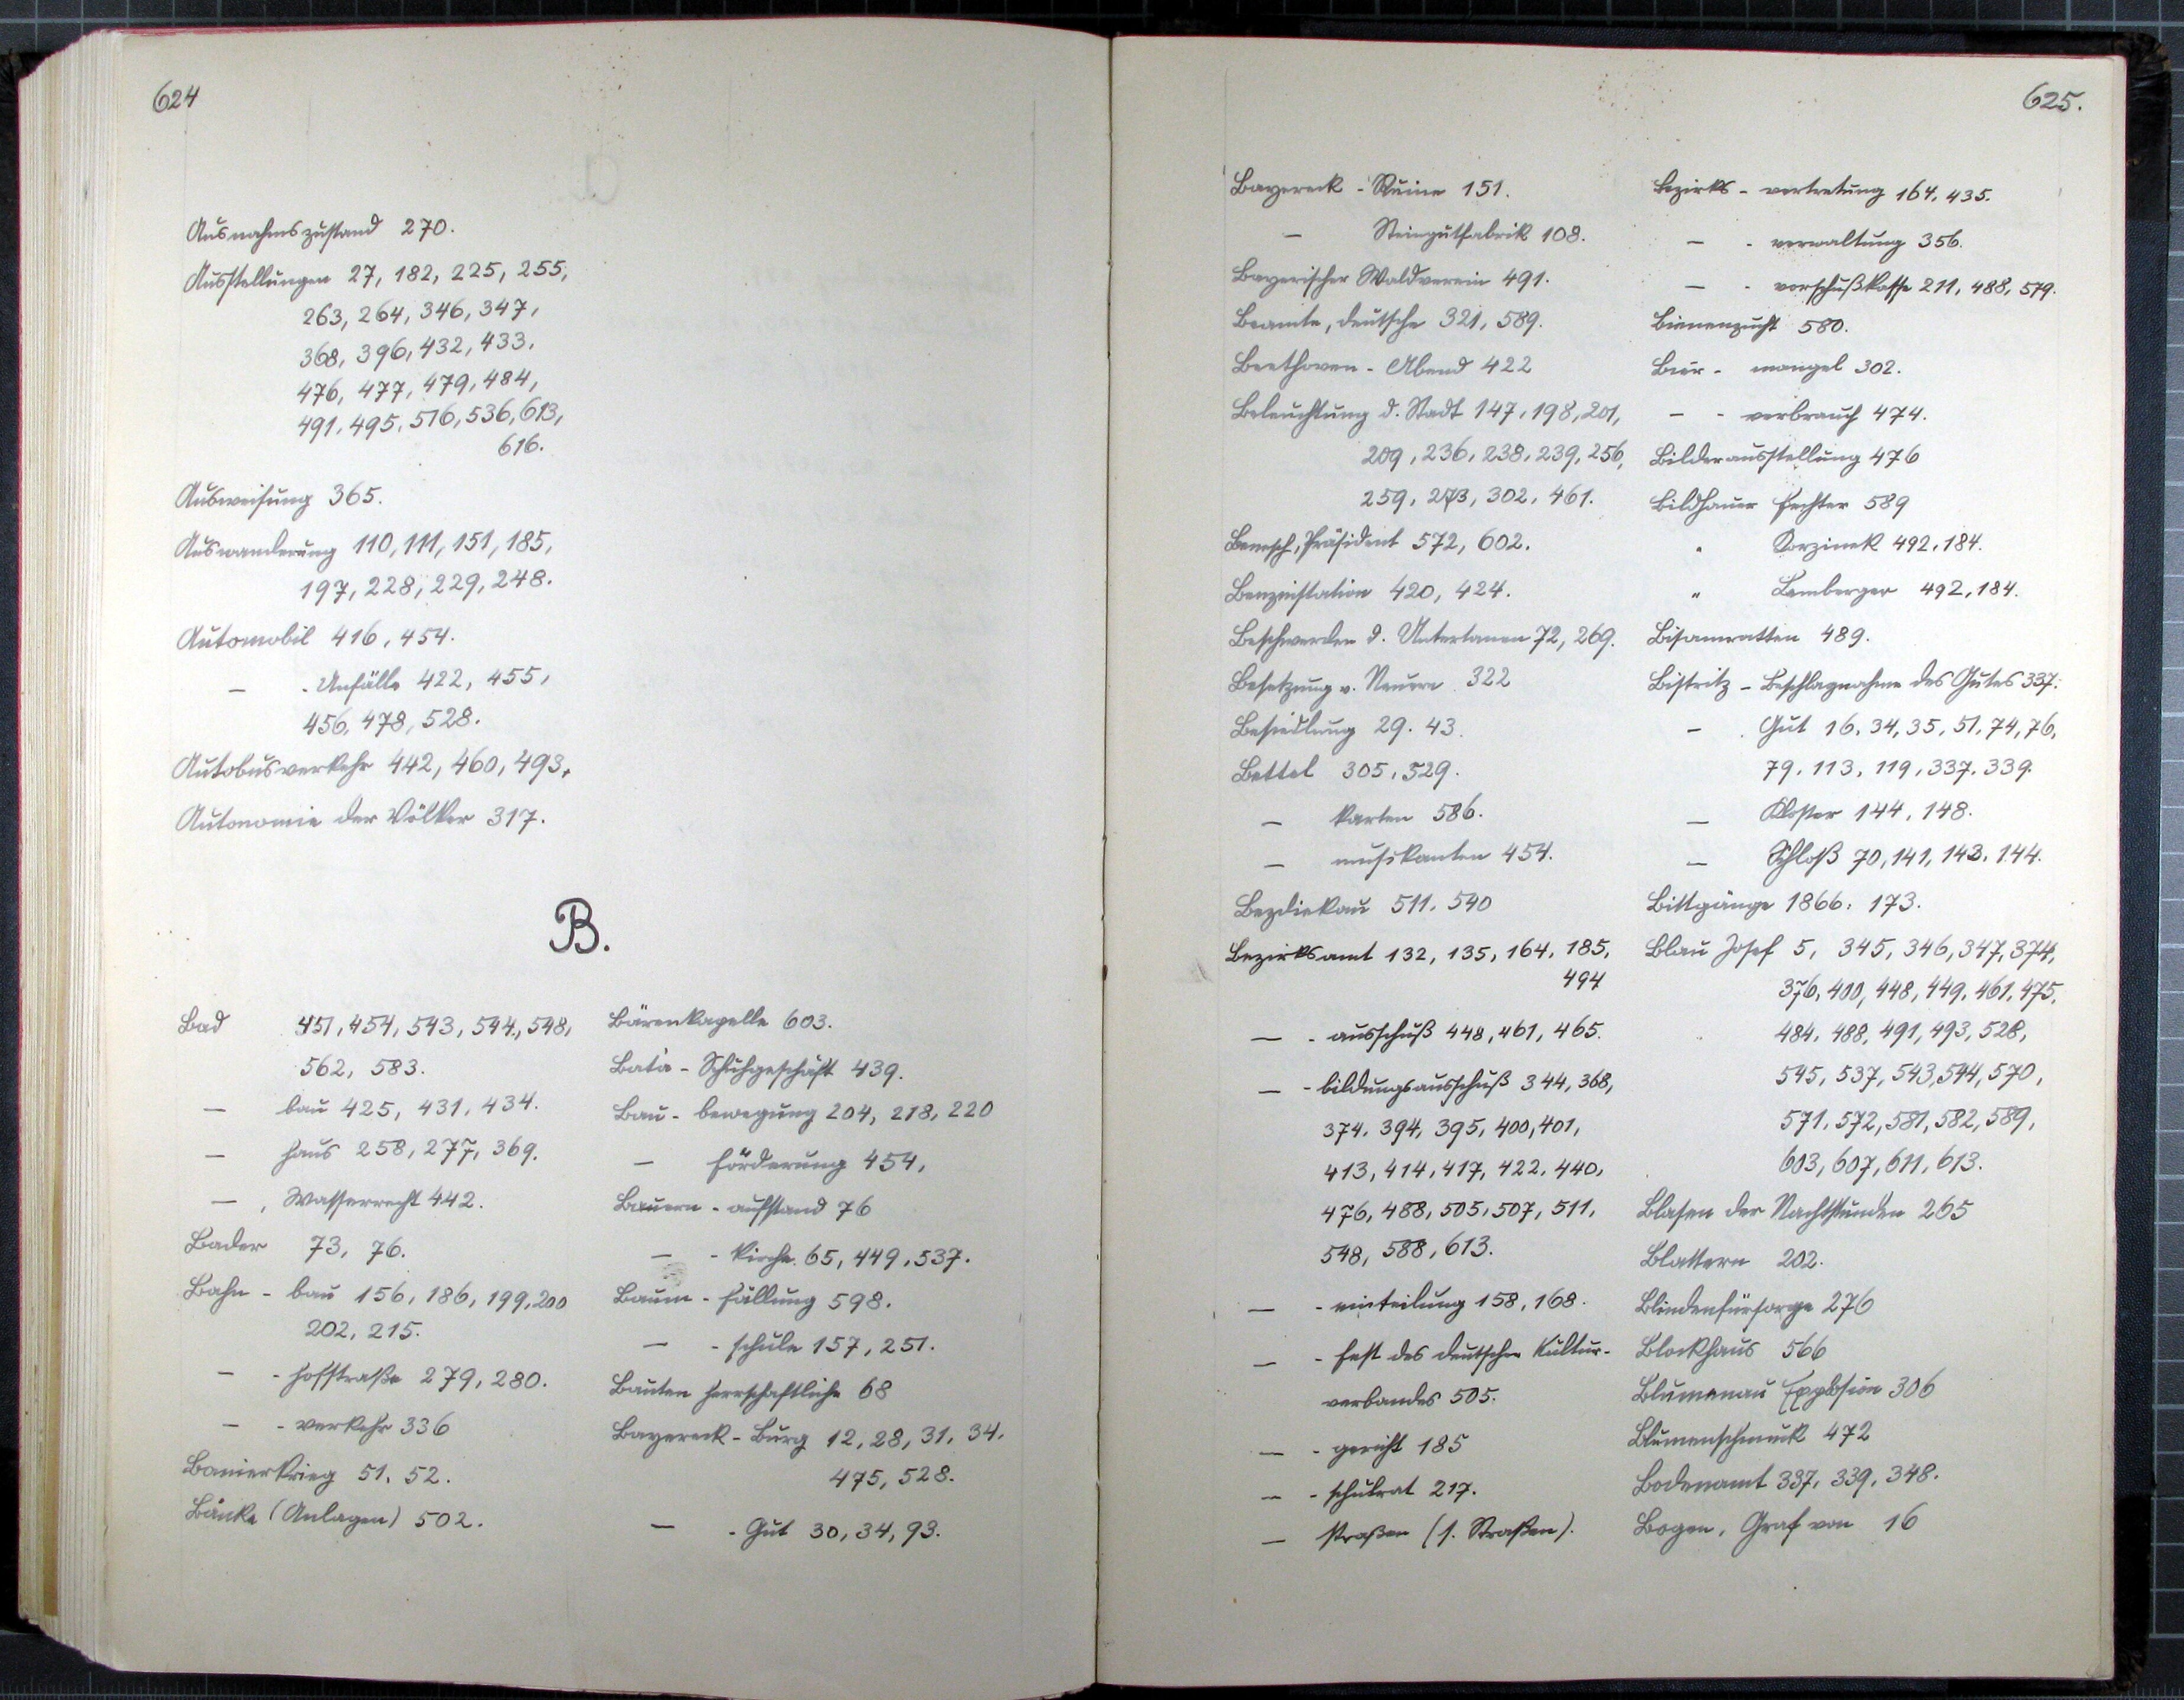 624
Ausnahmszustand 270.
Ausstellungen 27, 182, 225, 255,
263, 264, 346, 347,
368, 396, 432, 433,
476, 477, 479, 484,
491, 495, 516, 536, 613,
616.
Ausweisung 365.
Auswanderung 110, 111, 151, 185,
197, 228, 229, 248.
Automobil 416, 454.
— - Unfälle 422, 455,
456, 478, 528.
Autobusverkehr 442, 460, 493.
Autonomie der Völker 317.
B.
Bad 451, 454, 543, 544, 548,
562, 583.
— bau 425, 431, 434.
— haus 258, 277, 369.
— , Wasserrecht 442.
Bader 73, 76.
Bahn - bau 156, 186, 199, 200
202, 215.
— - hofstraße 279, 280.
— - verkehr 336
Banierkrieg 51, 52.
Bänke (Anlagen) 502.
Bärenkapelle 603.
Bata - Schuhgeschäft 439.
Bau - bewegung 204, 218, 220
— förderung 454,
Bauern - aufstand 76
— - kirche 65, 449, 537.
Baum - fällung 598.
— - schule 157, 251.
Bauten herrschaftliche 68
Bayereck - Burg 12, 28, 31, 34,
475, 528.
— - Gut 30, 34, 93.
625.
Bayereck - Ruine 151.
— Steingutfabrik 108.
Bayerischer Waldverein 491.
Beamte, deutsche 321, 589.
Beethoven - Abend 422
Beleuchtung d. Stadt 147, 198, 201,
209, 236, 238, 239, 256,
259, 273, 302, 461.
Benesch, Präsident 572, 602.
Benzinstation 420, 424.
Beschwerden d. Untertanen 72, 269.
Besetzung v. Neuern 322
Besiedlung 29. 43.
Bettel 305, 329.
— karten 586.
— musikanten 454.
Bezdiekau 511, 540
Bezirksamt 132, 135, 164, 185,
494
— - ausschuß 448, 461, 465.
— - bildungsausschuß 344, 368,
374, 394, 395, 400, 401,
413, 414, 417, 422, 440,
476, 488, 505, 507, 511,
548, 588, 613.
— - einteilung 158, 168.
— - fest des deutschen Kultur-
verbandes 505.
— - gericht 185
— - schulrat 217.
— straßen (s. Straßen).
Bezirks - vertretung 164, 435.
— - verwaltung 356.
— - vorschußkasse 211, 488, 579.
Bienenzucht 580.
Bier - mangel 302.
— - verbrauch 474.
Bilderausstellung 476
Bildhauer Fechter 589
" Korzinek 492, 184.
" Lemberger 492, 184.
Bisamratten 489.
Bistritz - Beschlagnahme des Gutes 337.
— - Gut 16, 34, 35, 51, 74, 76,
79, 113, 119, 337, 339.
— Kloster 144, 148.
— Schloß 70, 141, 143, 144.
Bittgänge 1866: 173.
Blau Josef 5, 345, 346, 347, 374,
376, 400, 448, 449, 461, 475,
484, 488, 491, 493, 528,
545, 537, 543, 544, 570,
571, 572, 581, 582, 589,
603, 607, 611, 613.
Blasen der Nachtstunden 265
Blattern 202.
Blindenfürsorge 276
Blockhaus 566
Blumenau Explosion 306
Blumenschmuck 472
Bodenamt 337, 339, 348.
Bogen, Graf von 16